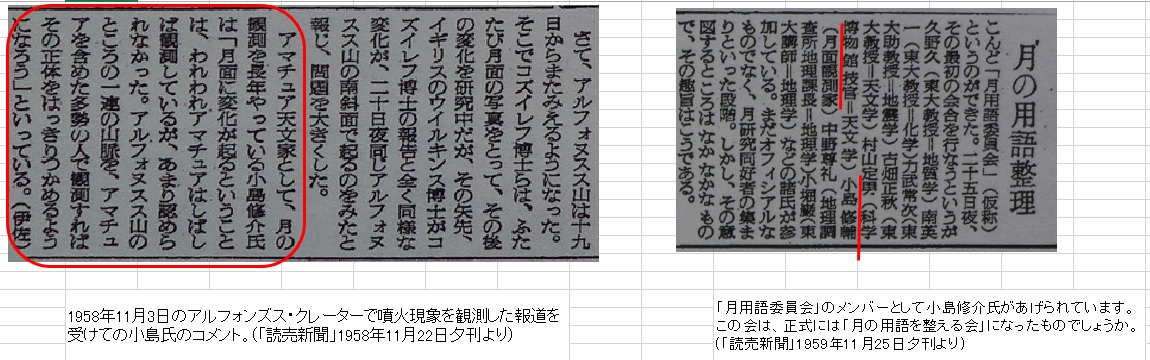 さて、アルフォヌスス山は十九
日からまたみえるようになった。
そこでコズイレフ博士らは、ふた
たび月面の写真をとって、その後
の変化を研究中だが、その矢先、
イギリスのウイルキンス博士がコ
ズイレフ博士の報告と全く同様な
変化が、二十日夜同じアルフォヌ
スス山の南斜面で起るのをみたと
報じ、問題を大きくした。
アマチュア天文家として、月の
観測を長年やっている小島修介氏
は「月面に変化が起るということ
は、われわれアマチュアはしばし
ば観測しているが、あまり認めら
れなかった。アルフォヌスス山の
ところの一連の山脈を、アマチュ
アを含めた多勢の人で観測すれば
その正体をはっきりつかめるよう
になろう」といっている。（伊佐）
1958年11月3日のアルフォンズス・クレーターで噴火現象を観測した報道を
受けての小島氏のコメント。(「読売新聞」1958年11月22日夕刊より)
月の用語整理
こんど「月用語委員会」（仮称）
というのができた。二十五日夜、
その最初の会合を行なうというが
久野久（東大教授＝地質学）南英
一（東大教授＝化学）力武常次（東
大助教授＝地震学）古畑正秋（東
大教授＝天文学）村山定男（科学
博物館技官＝天文学）小島修輔
（月面観測家）中野尊礼（地理調
査所地理課長＝地理学）小堀巌（東
大講師＝地理学）などの諸氏が参
加している。まだオフィシアルな
ものでなく、月研究同好者の集ま
りといった段階。しかし、その意
図するところはなかなかなもの
で、その趣旨はこうである。
「月用語委員会」のメンバーとして小島修介氏があげられています。
この会は、正式には「月の用語を整える会」になったものでしょうか。
(「読売新聞」1959年11月25日夕刊より)